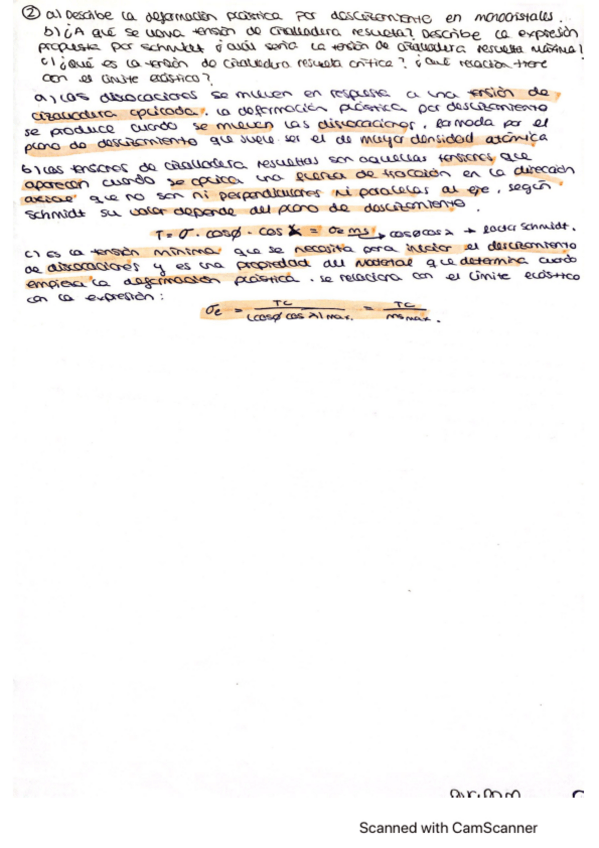 ② a) Describe la deformación plástica por deslizamiento en monocristales.
b) ¿A qué se llama tensión de cizalladura resuelta? Describe la expresión
propuesta por schmidt ¿cuál sería la tensión de cizalladura resuelta máxima?
c) ¿qué es la tensión de cizalladura resuelta crítica? ¿qué relación tiene
con el límite elástico?
a) Las dislocaciones se mueven en respuesta a una tensión de
cizalladura aplicada. La deformación plástica por deslizamiento
se produce cuando se mueven las dislocaciones, por el
plano de deslizamiento que suele ser el de mayor densidad atómica
b) Las tensiones de cizalladura resueltas son aquellas tensiones que
aparecen cuando se aplica una fuerza de tracción en la dirección
axial que no son ni perpendiculares ni paralelas al eje, según
Schmidt su valor depende del plano de deslizamiento.
T = σ · cosφ · cos λ = σe ms → cosφcosλ → factor Schmidt.
c) es la tensión mínima que se necesita para iniciar el deslizamiento
de dislocaciones y es una propiedad del material que determina cuando
empieza la deformación plástica. se relaciona con el límite elástico
con la expresión:
σe = TC / (cosφ cos λ) max. = TC / ms max.
Scanned with CamScanner